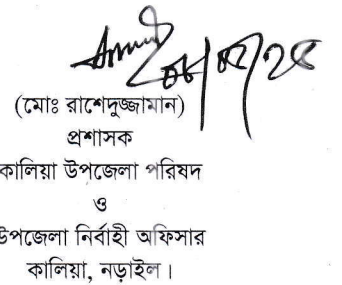 ০৮/০৭/২৫
(মোঃ রাশেদুজ্জামান)
প্রশাসক
কালিয়া উপজেলা পরিষদ
ও
উপজেলা নির্বাহী অফিসার
কালিয়া, নড়াইল।